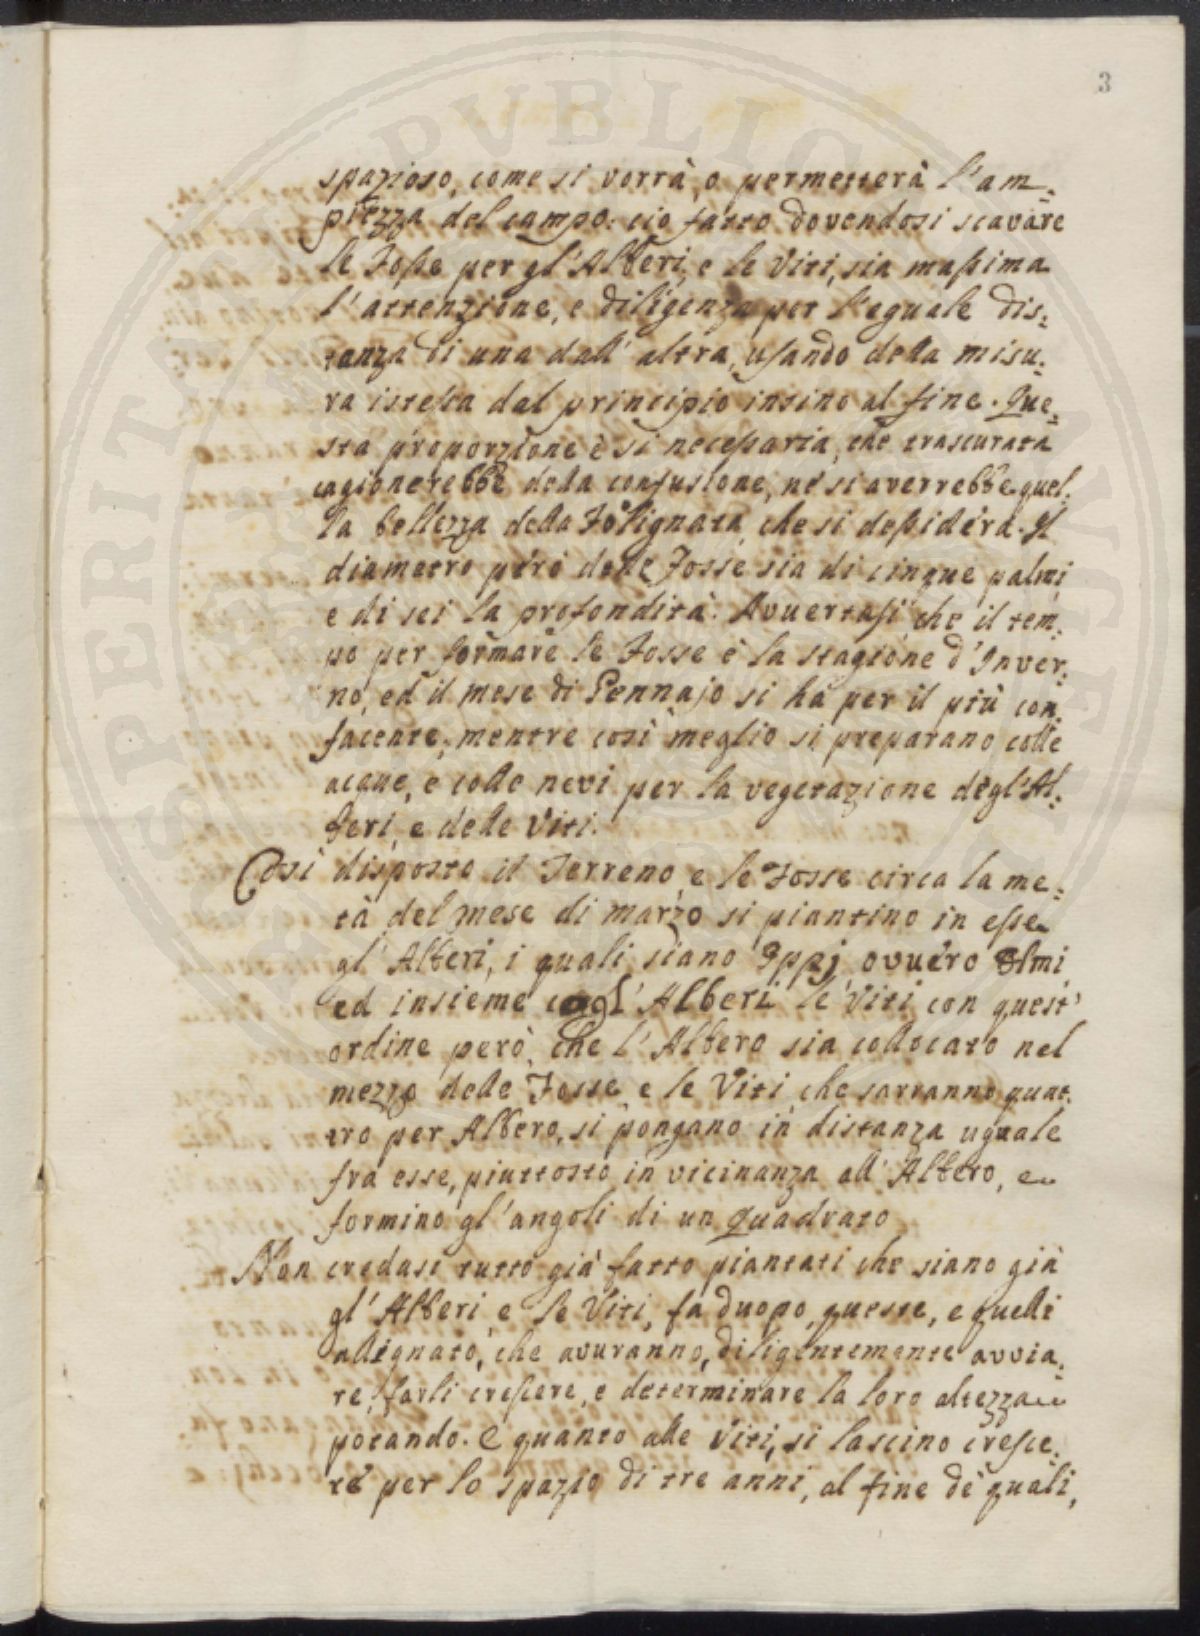 3
spazioso, come si vorrà, o permetterà l'am=
piezza del campo: cio fatto dovendosi scavare
le Fosse per gl'Alberi, e le Viti, sia massima
l'attenzione, e diligenza per l'eguale dis=
tanza di una dall'altra, usando della misu=
ra istessa dal principio insino al fine. Que=
sta proporzione è sì necessaria, che trascurata
cagionerebbe della confusione, nè si averrebbe quel=
la bellezza della Folignata, che si desidera. Il
diametro però delle Fosse sia di cinque palmi
e di sei la profondità. Avvertasi, che il tem=
po per formare le Fosse è la stagione d'Inver=
no, ed il mese di Gennajo si ha per il più con=
facente, mentre così meglio si preparano colle
acque, e colle nevi per la vegetazione degl'Al=
beri, e delle Viti.
Così disposto il Terreno, e le Fosse circa la me=
tà del mese di marzo si piantino in esse
gl'Alberi, i quali siano Oppj ovvero Olmi
ed insieme cogl'Alberi le Viti con quest'
ordine però, che l'Albero sia collocato nel
mezzo delle Fosse, e le Viti, che sarranno quat=
tro per Albero, si pongano in distanza uguale
fra esse, piuttosto in vicinanza all'Albero, e
formino gl'angoli di un Quadrato
Non credasi tutto già fatto piantati che siano già
gl'Alberi e le Viti, fa duopo, queste, e quelli
allignato, che avuranno, diligentemente avvia=
re, farli crescere, e determinare la loro altezza
potando. E quanto alle Viti, si lascino cresce=
re per lo spazio di tre anni, al fine de' quali,
SPERITATI PVBLICAE AVGENDAE